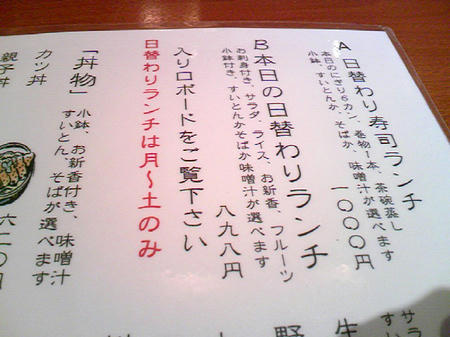 A 日替わり寿司ランチ
本日のにぎり6カン、巻物一本、茶碗蒸し
小鉢、すいとんか、そばか、味噌汁が選べます
一〇〇〇円
B 本日の日替わりランチ
お刺身付き、サラダ、ライス、お新香、フルーツ
小鉢付き、すいとんかそばか味噌汁が選べます
八九八円
入り口ボードをご覧下さい
日替わりランチは月～土のみ
「丼物」
小鉢、お新香付き、味噌汁
すいとん、そばが選べます
カツ丼
親子丼
六二〇円
生
野
サラ
すい